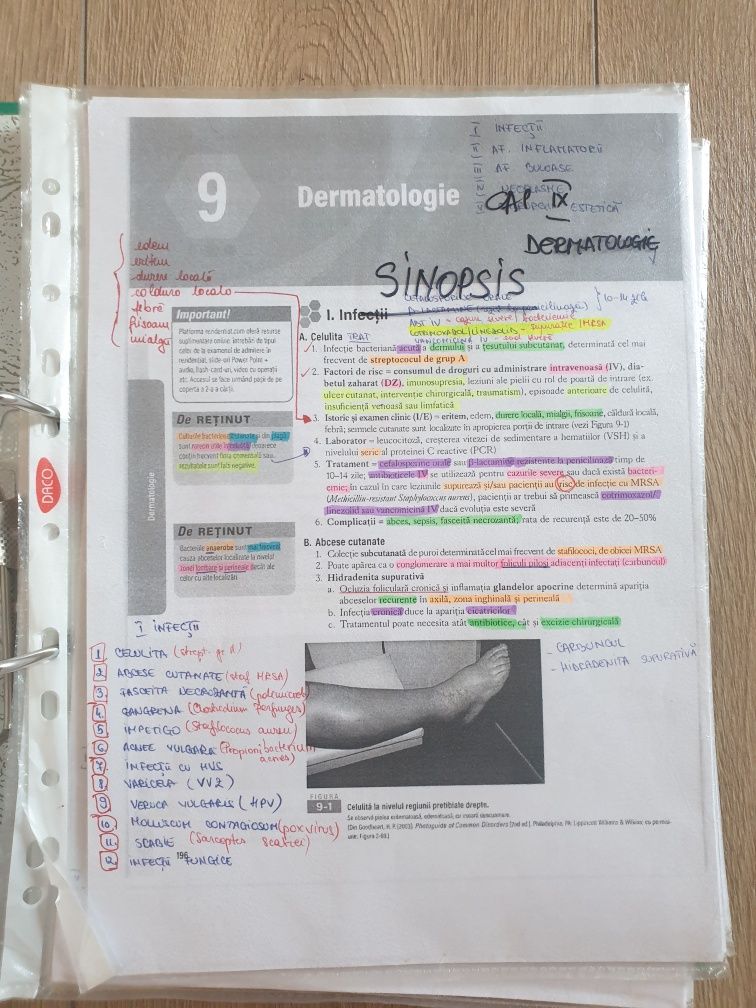 I INFECȚII
II AF. INFLAMATORII
III AF. BULOASE
IV NEOPLASME
V ESTETICĂ
9 Dermatologie
CAP IX
DERMATOLOGIE
SINOPSIS
edem
eritem
durere locală
caldura locala
febră
frisoane
mialgii
Important!
Platforma rezidential.com oferă resurse
suplimentare online: întrebări de tipul
celor de la examenul de admitere în
rezidențiat, slide-uri Power Point +
audio, flash-card-uri, video cu operații
etc. Accesul se face urmând pașii de pe
coperta a 2-a a cărții.
I. Infecții
10-14 zile
A. Celulita TRAT
1. Infecție bacteriană acută a dermului și a țesutului subcutanat, determinată cel mai
frecvent de streptococul de grup A
2. Factori de risc = consumul de droguri cu administrare intravenoasă (IV), dia-
betul zaharat (DZ), imunosupresia, leziuni ale pielii cu rol de poartă de intrare (ex.
ulcer cutanat, intervenție chirurgicală, traumatism), episoade anterioare de celulită,
insuficiență venoasă sau limfatică
3. Istoric și examen clinic (I/E) = eritem, edem, durere locală, mialgii, frisoane, căldură locală,
febră; semnele cutanate sunt localizate în apropierea porții de intrare (vezi Figura 9-1)
4. Laborator = leucocitoză, creșterea vitezei de sedimentare a hematiilor (VSH) și a
nivelului seric al proteinei C reactive (PCR)
5. Tratament = cefalosporine orale sau β-lactamine rezistente la penicilinază timp de
10–14 zile; antibioticele IV se utilizează pentru cazurile severe sau dacă există bacteri-
emie; în cazul în care leziunile supurează și/sau pacienții au risc de infecție cu MRSA
(Methicillin-resistant Staphylococcus aureus), pacienții ar trebui să primească cotrimoxazol/
linezolid sau vancomicină IV dacă evoluția este severă
6. Complicații = abces, sepsis, fasceită necrozantă; rata de recurență este de 20–50%
De REȚINUT
Culturile bacteriene cutanate și din plagă
sunt rareori utile întrucât deoarece
conțin frecvent flora cremonială sau
rezultatele sunt fals negative.
Dermatologie
DACO
De REȚINUT
Bacteriile anaerobe sunt mai frecvent
cauza abceselor localizate la nivelul
zonei lombare și perineale decât ale
celor cu alte localizări.
B. Abcese cutanate
1. Colecție subcutanată de puroi determinată cel mai frecvent de stafilococi, de obicei MRSA
2. Poate apărea ca o conglomerare a mai multor foliculi piloși adiacenți infectați (carbuncul)
3. Hidradenita supurativă
a. Ocluzia foliculară cronică și inflamația glandelor apocrine determină apariția
abceselor recurente în axilă, zona inghinală și perineală
b. Infecția cronică duce la apariția cicatricilor
c. Tratamentul poate necesita atât antibiotice, cât și excizie chirurgicală
- CARBUNCUL
- HIDRADENITA SUPURATIVĂ
I INFECȚII
1 CELULITA (strept. gr A)
2 ABCESE CUTANATE (staf MRSA)
3 FASCEITA NECROZANTĂ (polimicrob)
4. GANGRENA (Clostridium Perfringes)
5 IMPETIGO (Stafilococus aureu)
6 ACNEE VULGARA (Propioni bacterium
acnes)
7 INFECȚII CU HVS
8 VARICELA (VVZ)
9 VERUCA VULGARIS (HPV)
10. MOLLUSCUM CONTAGIOSUM (poxvirus)
11. SCABIE (Sarcoptes Scabiei)
12 INFECȚII FUNGICE
196
FIGURA
9-1 Celulită la nivelul regiunii pretibiale drepte.
Se observă pielea eritematoasă, edemațiată, cu tonuri descuamare.
(Din Goodheart, H. P. [2003]. Photoguide of Common Disorders [2nd ed.]. Philadelphia, PA: Lippincott Williams & Wilkins; cu permisi-
une; Figura 2-60.)